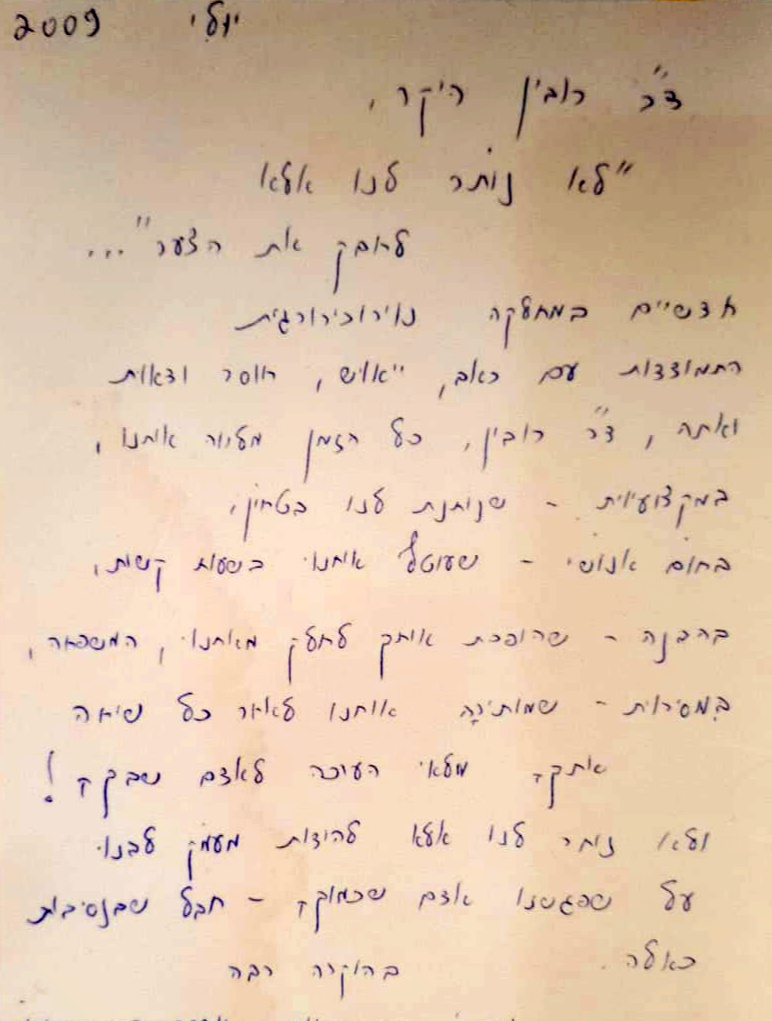 יולי 2009
ד״ר רובין היקר,
״לא נותר לנו אלא
לחבק את הצער״...
חדשיים במחלקה נוירוכירורגית
התמודדות עם כאב, ייאוש, חוסר ודאות
ואתה, ד״ר רובין, כל הזמן מלווה אותנו,
במקצועיות - שנותנת לנו בטחון,
בחום אנושי - שעוטף אותנו בשעות קשות,
בהבנה - שהופכת אותך לחלק מאתנו, המשפחה,
במסירות - שמותירה אותנו לאחר כל שיחה
אתך מלאי הערכה לאדם שבך!
ולא נותר לנו אלא להודות מעומק לבנו
על שפגשנו אדם שכמוך - חבל שבנסיבות
כאלה. בהוקרה רבה